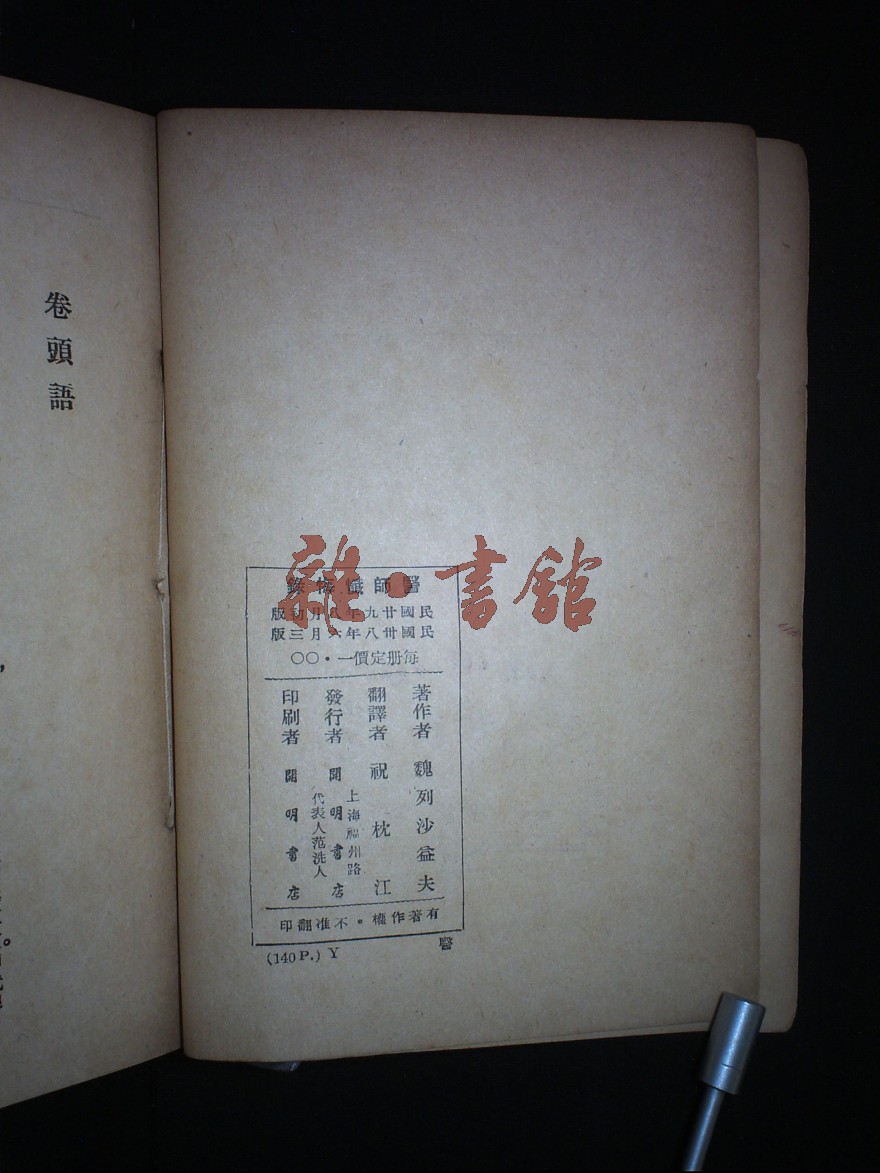 雜·書館
醫師懺悔錄
民國廿九年八月初版
民國卅八年六月三版
每册定價一·〇〇
著作者 魏列沙益夫
翻譯者 祝枕江
發行者 開明書店
上海福州路
代表人范洗人
印刷者 開明書店
有著作權·不准翻印
(140P.) Y
醫
卷頭語